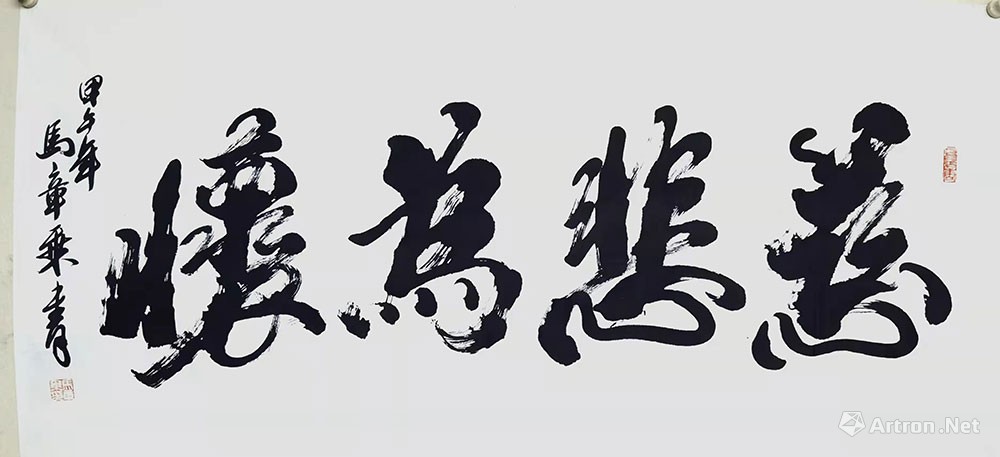 慈悲為懷
甲午年
馬章乘書
Artron.Net